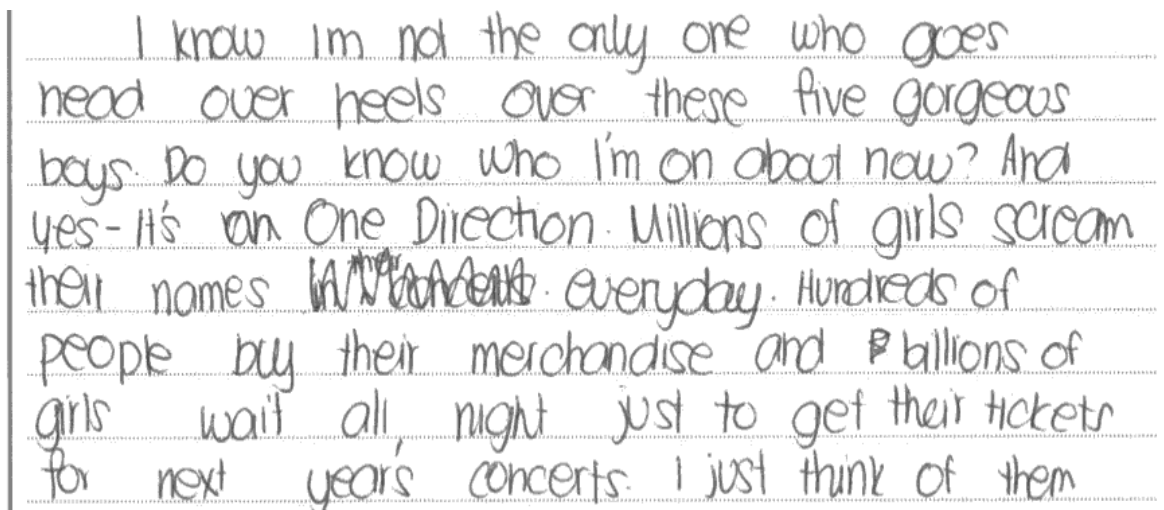 I know Im not the only one who goes
head over heels over these five gorgeous
boys. Do you know who I'm on about now? And
yes - It's on One Direction. Millions of girls scream
their names everyday. Hundreds of
people buy their merchandise and billions of
girls wait all night just to get their tickets
for next year's concerts. I just think of them